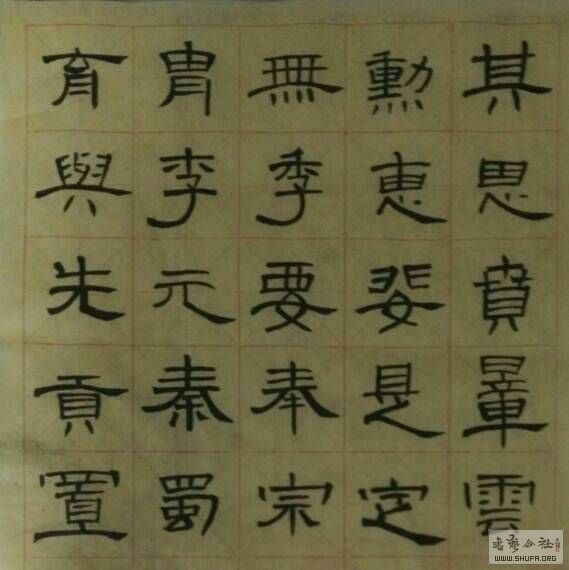 其思賁暈雲
勳恵婓是定
無季要奉宗
胄李元秦蜀
育與先貢置
書藝公社
WWW.SHUFA.ORG